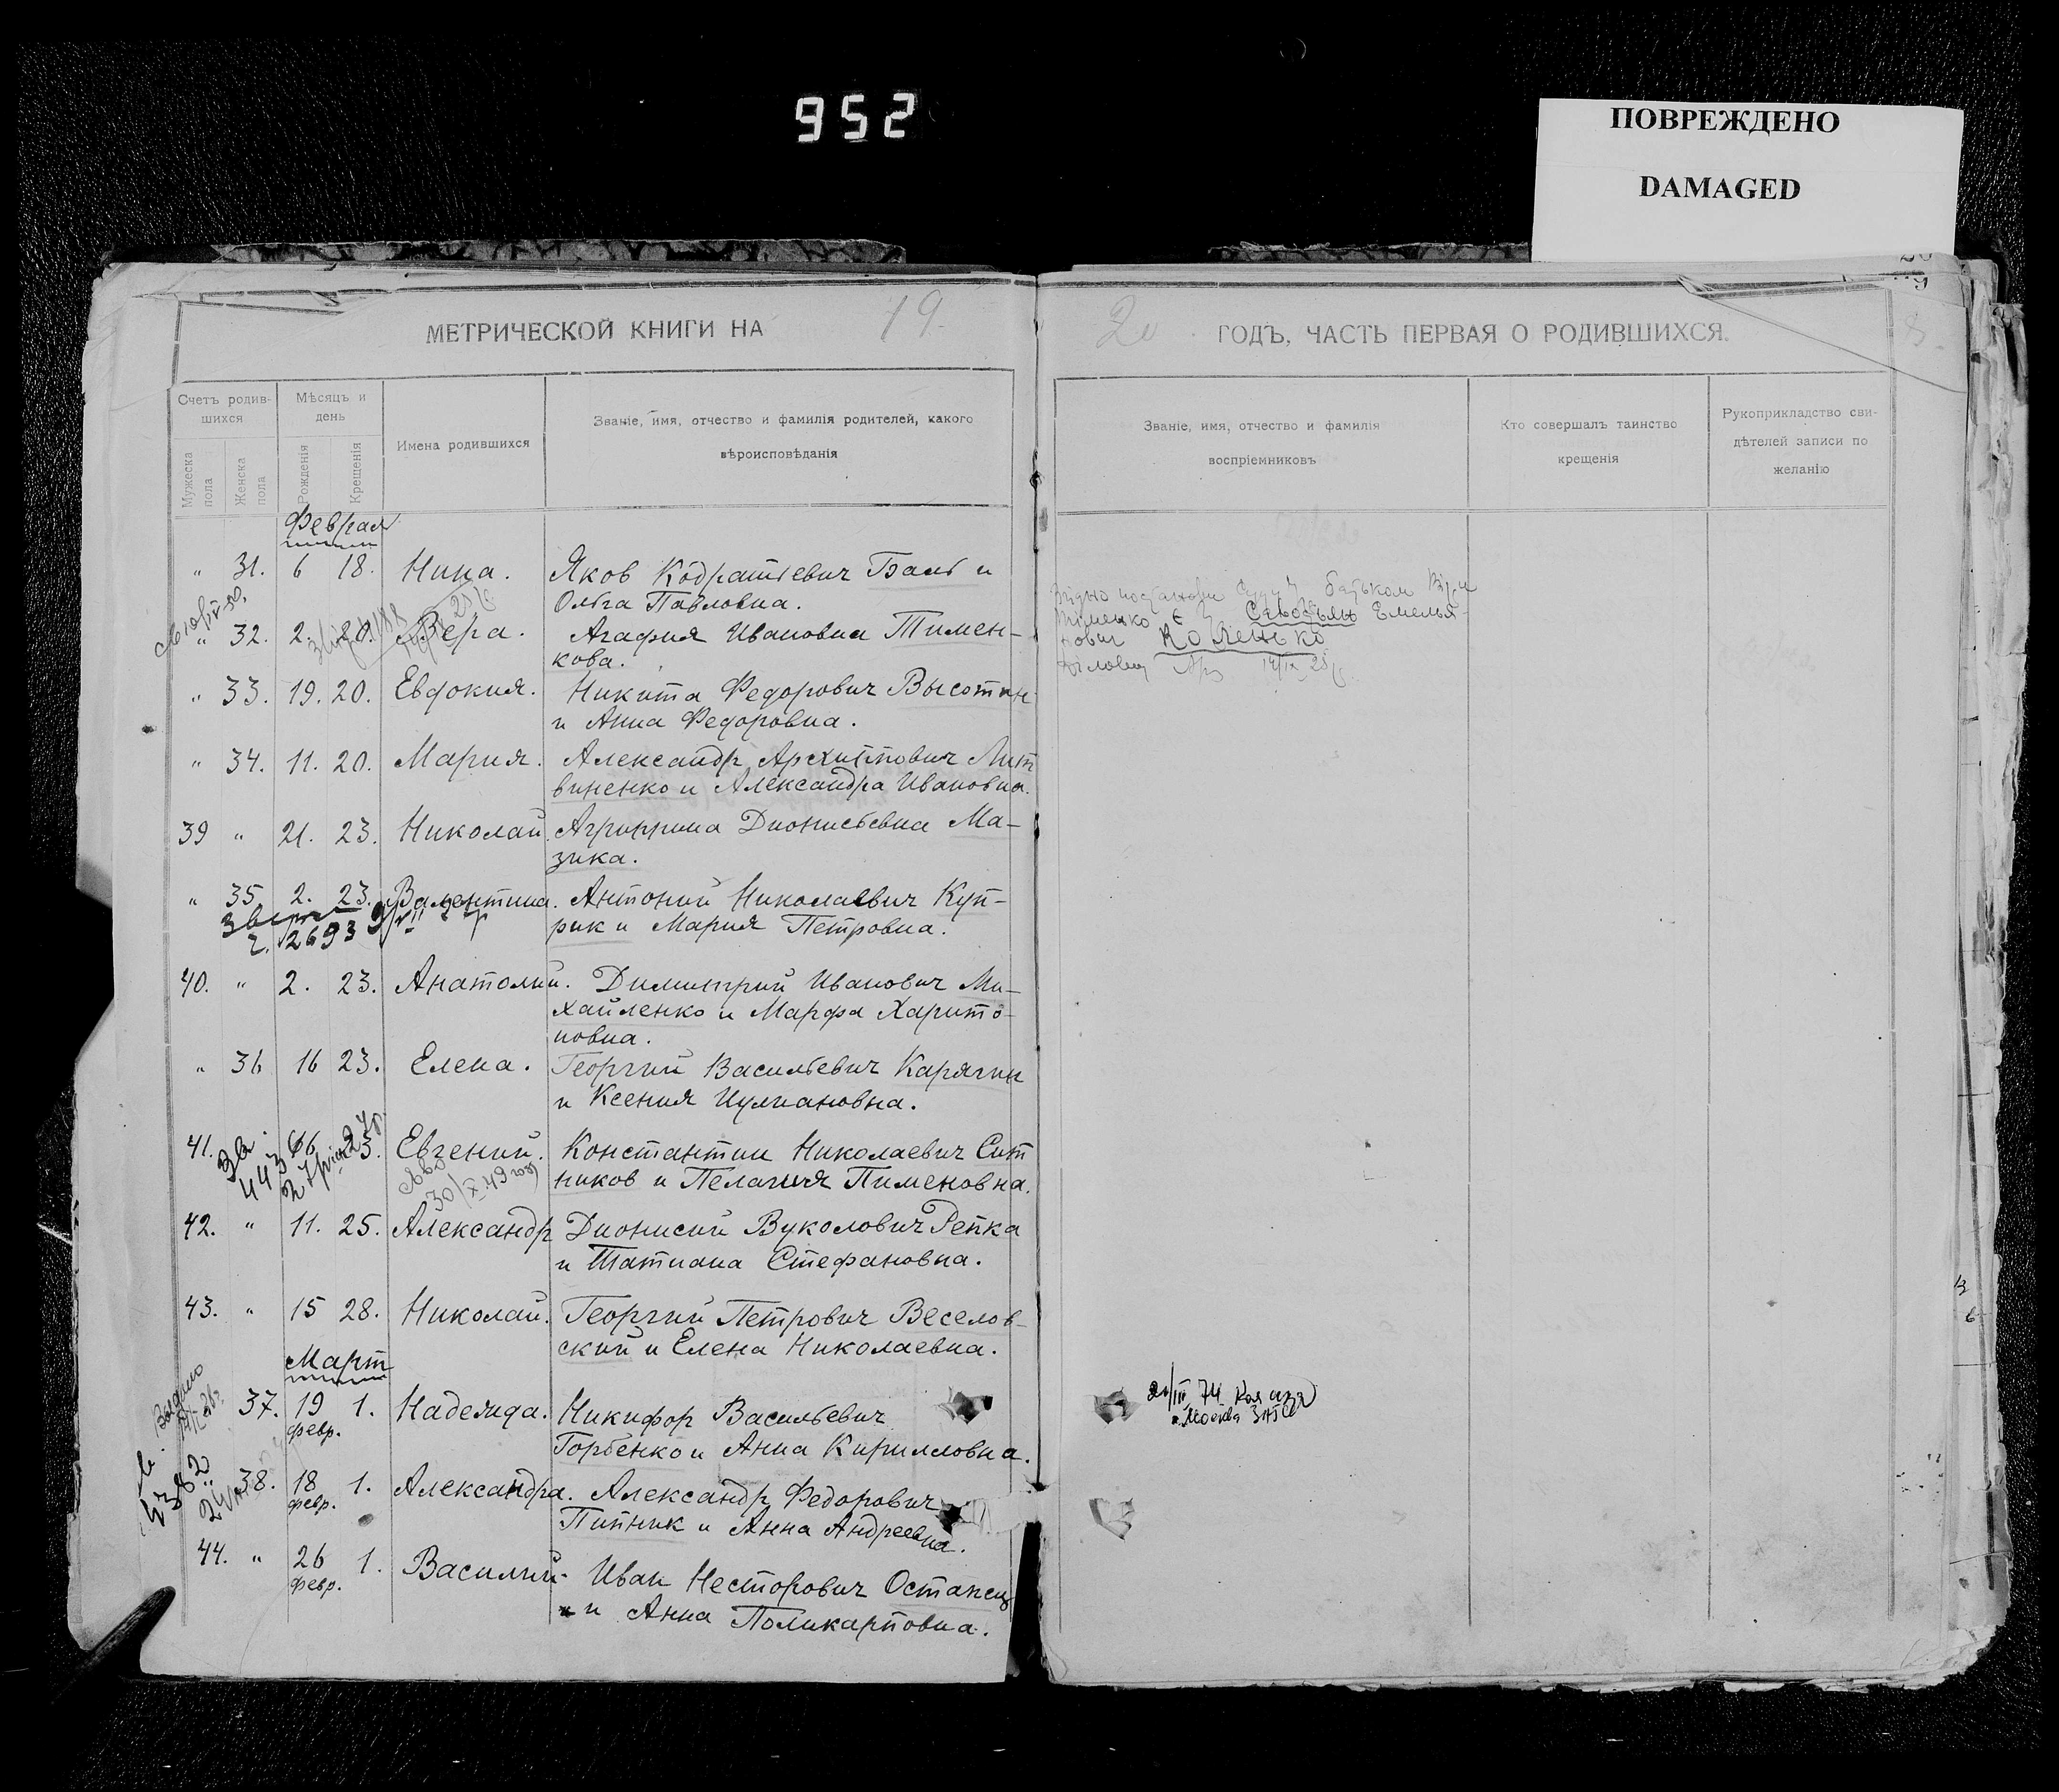 952
ПОВРЕЖДЕНО
DAMAGED
МЕТРИЧЕСКОЙ КНИГИ НА 19
20 ГОДЪ, ЧАСТЬ ПЕРВАЯ О РОДИВШИХСЯ.
Счетъ родив-
шихся
Мужеска пола
Женска пола
Мѣсяцъ и
день
Рожденія
Крещенія
Имена родившихся
Званіе, имя, отчество и фамилія родителей, какого
вѣроисповѣданія
Званіе, имя, отчество и фамилія
воспріемниковъ
Кто совершалъ таинство
крещенія
Рукоприкладство сви-
дѣтелей записи по
желанію
Февраля
" 31. 6 18. Нина. Яков Кодратьевич Бало и
Ольга Павловна.
" 32. 2. 20. Вера. Агафия Ивановна Тимен-
кова.
" 33. 19. 20. Евдокия. Никита Федорович Высотин
и Анна Федоровна.
" 34. 11. 20. Мария. Александр Архиппович Лит
виненко и Александра Ивановна.
39 " 21. 23. Николай Агриппина Дионисьевна Ма-
зика.
" 35 2. 23. Валентина. Антоний Николаевич Куп-
рик и Мария Петровна.
2693
40. " 2. 23. Анатолий. Димитрий Иванович Ми-
хайленко и Марфа Харито-
новна.
" 36 16 23. Елена. Георгий Васильевич Карягин
и Ксения Иулиановна.
41. 23. Евгений. Константин Николаевич Сит
ников и Пелагия Пименовна.
42. " 11. 25. Александр Дионисий Вуколович Репка
и Татиана Стефановна.
43. " 15 28. Николай. Георгий Петрович Веселов-
ский и Елена Николаевна.
Март
37. 19 1. Надежда. Никифор Васильевич
февр.
Горбенко и Анна Кирилловна.
38. 18 1. Александра. Александр Федорович
февр.
Пипник и Анна Андреевна.
44. " 26 1. Василий Иван Несторович Останец
февр.
и Анна Поликарповна.
батьком
Севостьян Емелья-
нович Коленько